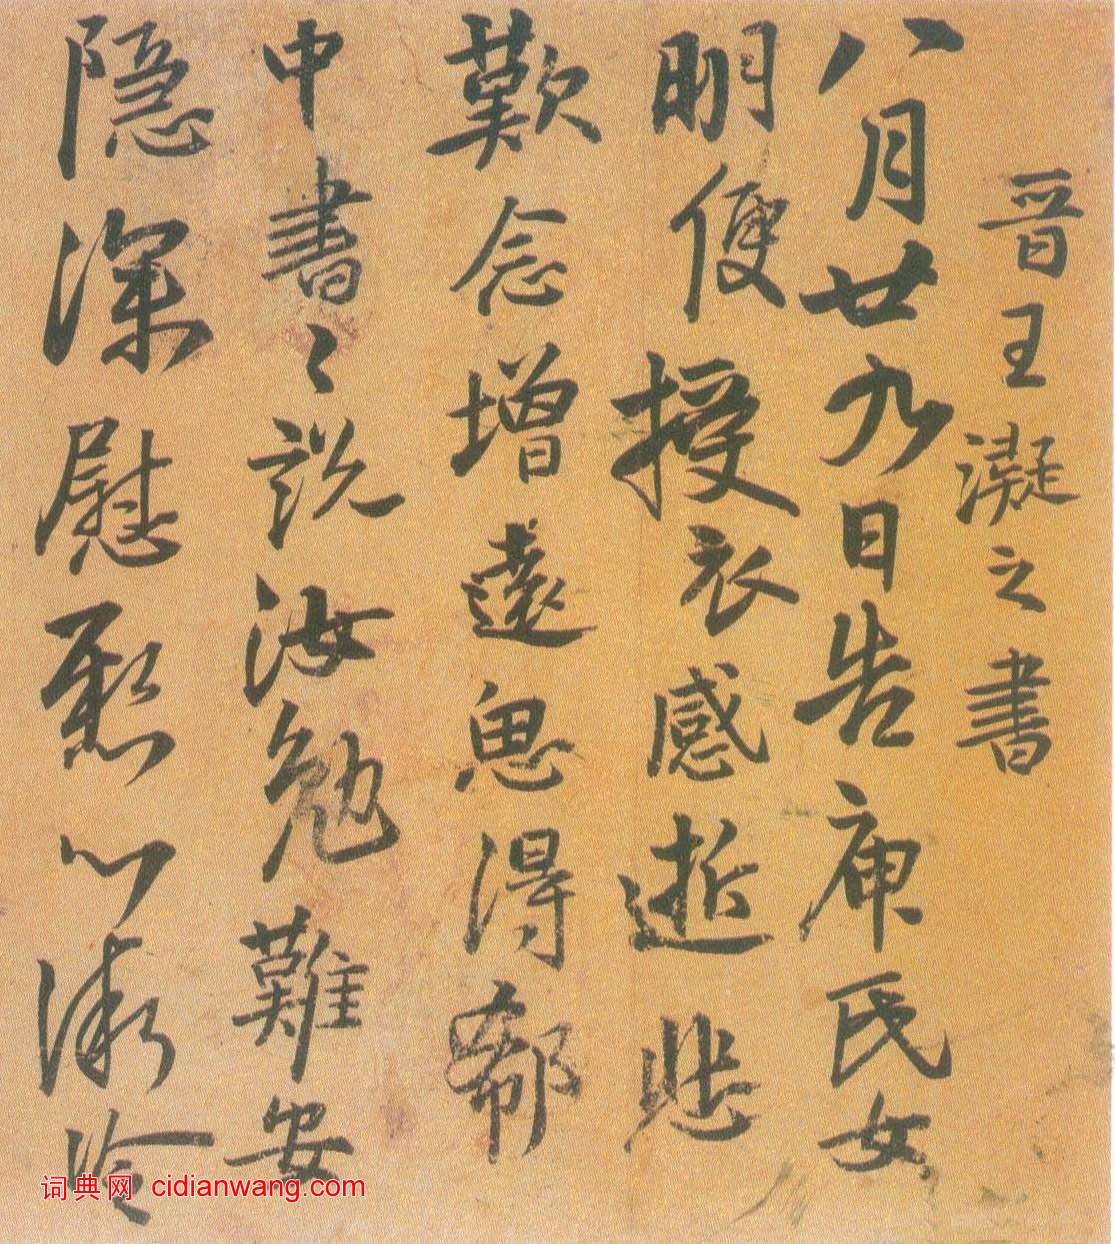 晉王凝之書
八月廿九日告庾氏女
明便授衣感逝悲
歎念增遠思得郗
中書〻說汝勉難安
隱深慰懸心微冷
词典网 cidianwang.com